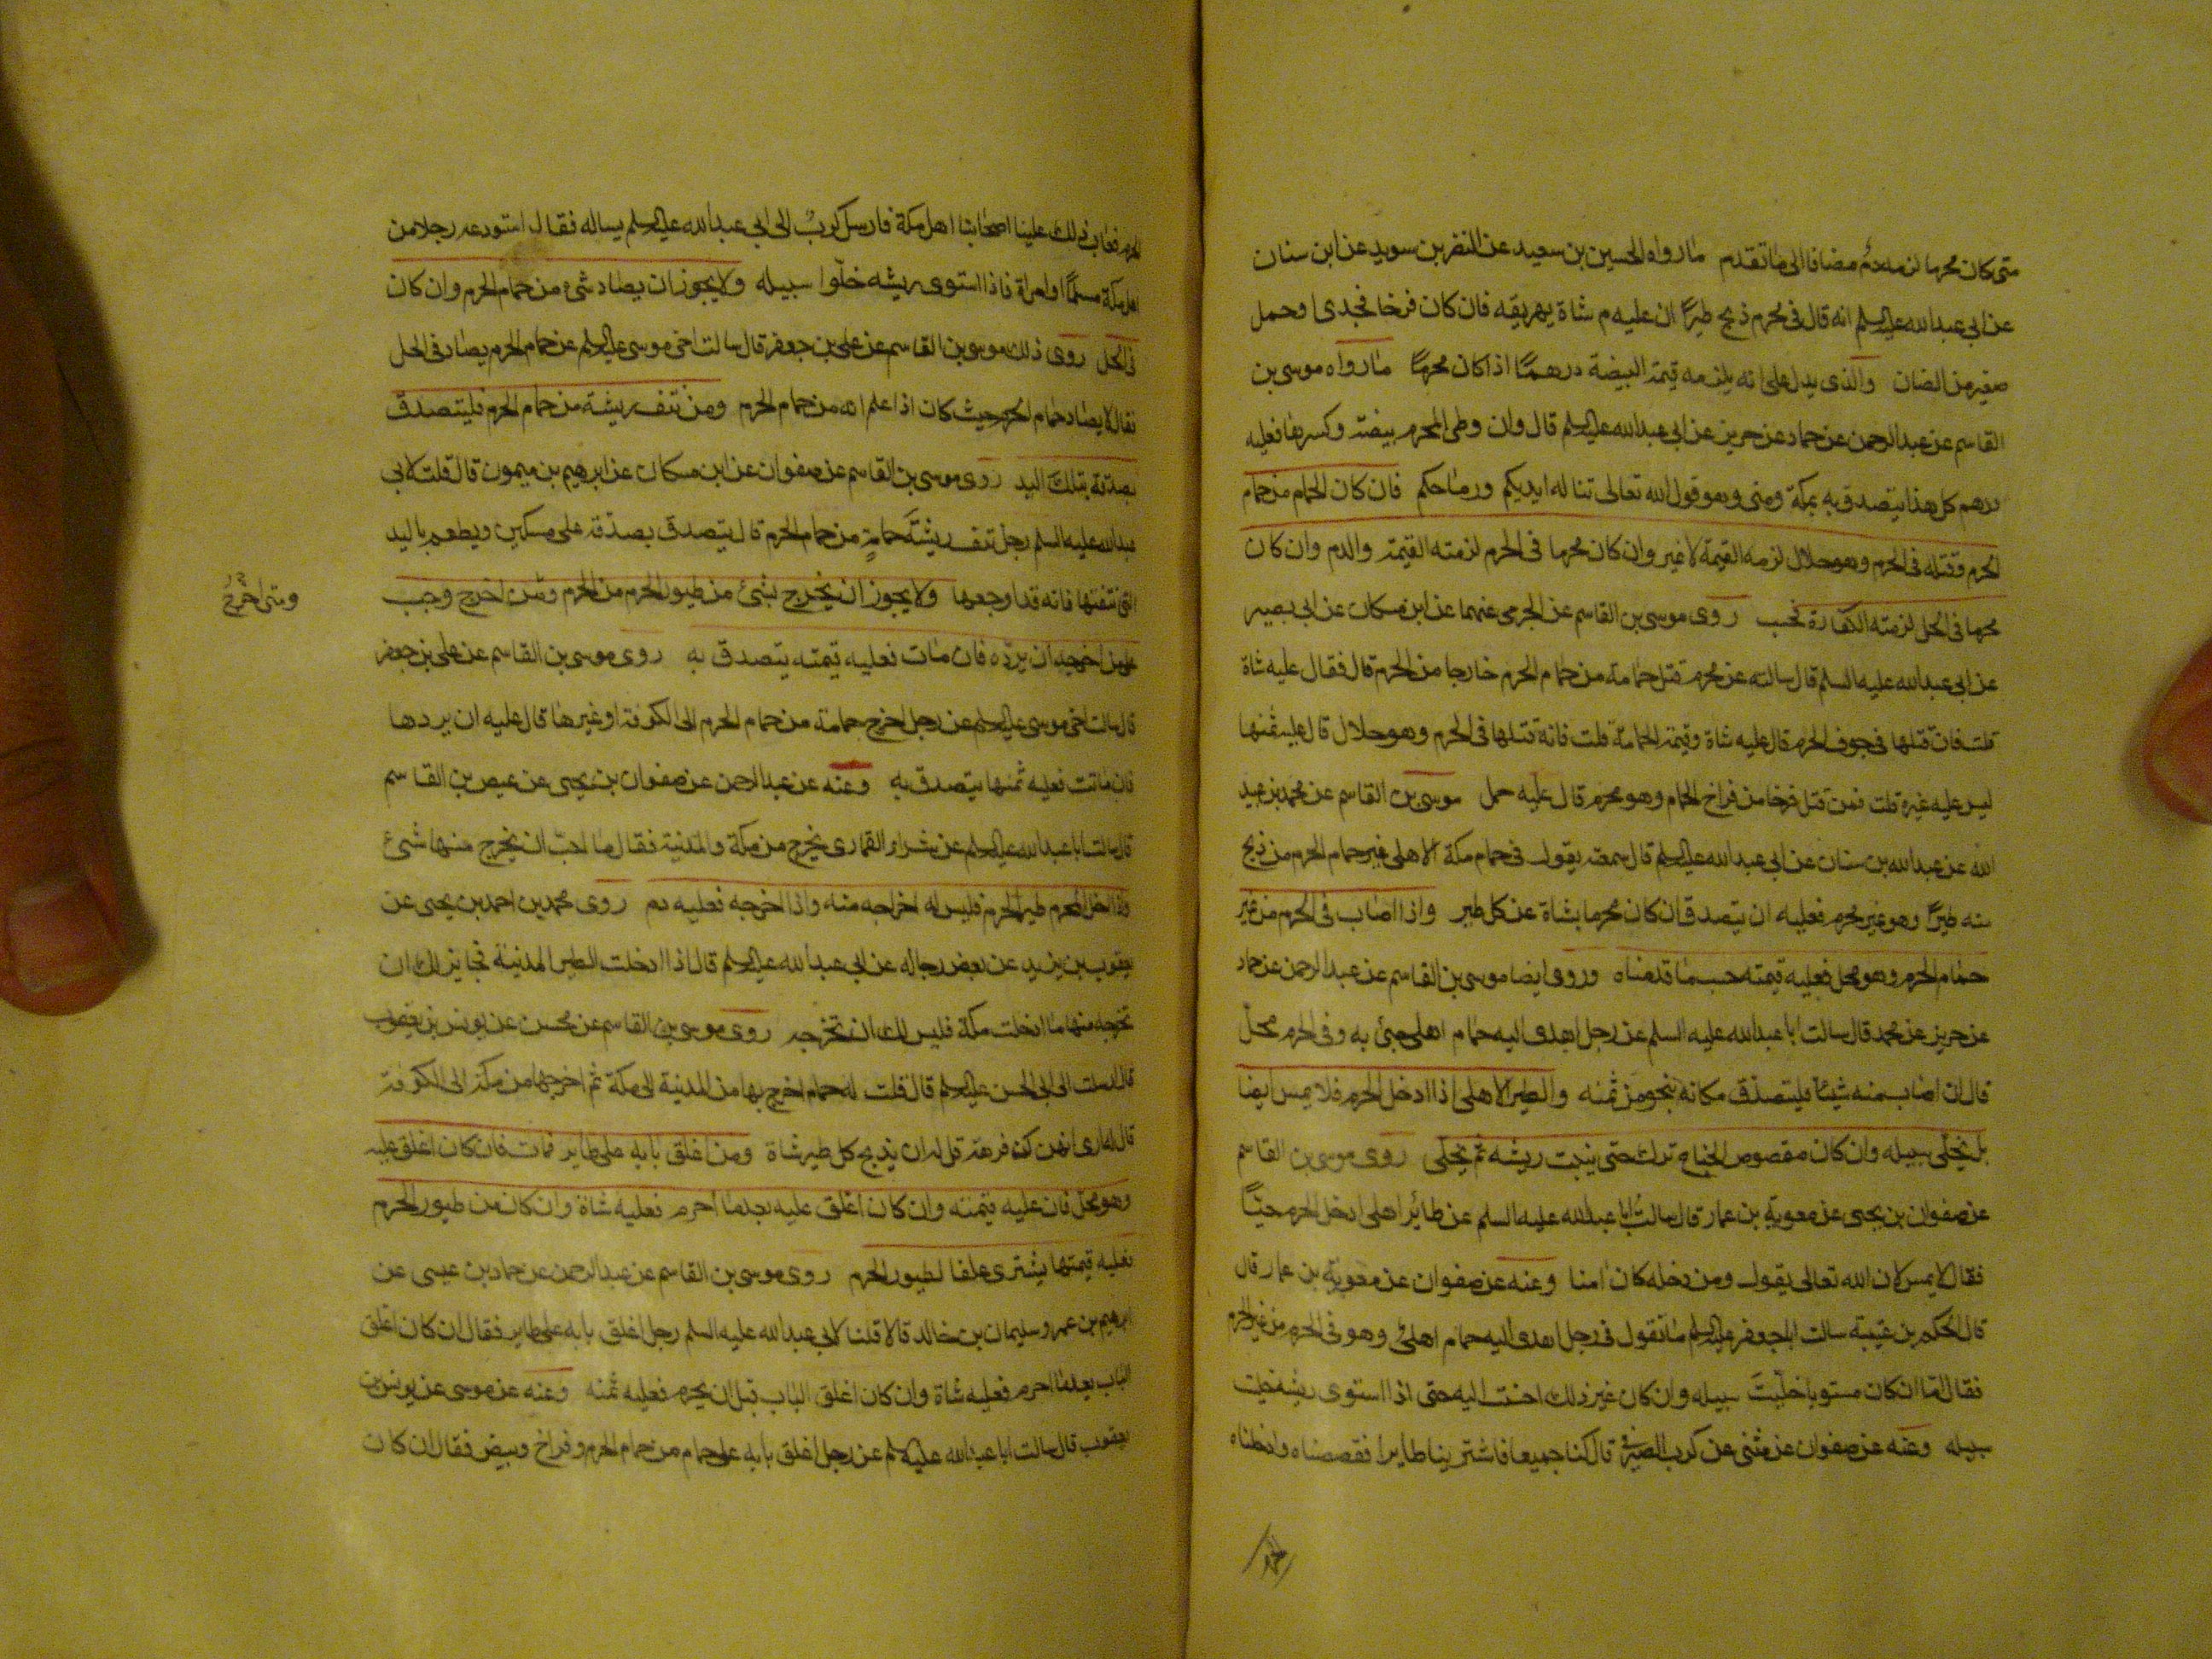 متى كان محرما لزمه دم مضافا الى ما تقدم ما رواه الحسين بن سعيد عن النضر بن سويد عن ابن سنان
عن ابى عبدالله عليه السلم انه قال فى محرم ذبح طيرًا ان عليه دم شاة يهريقه فان كان فرخا فجدى او حمل
صغير من الضان والذى يدل على انه يلزمه قيمة البيضة درهمًا اذا كان محرمًا ما رواه موسى بن
القاسم عن عبد الرحمن عن حماد عن حريز عن ابى عبدالله عليه السلم قال وان وطى المحرم بيضة وكسرها فعليه
درهم كل هذا يتصدق به بمكة ومنى وهو قول الله تعالى تناله ايديكم ورماحكم فان كان الحمام من حمام
الحرم وقتله فى الحرم وهو حلال لزمه القيمة لا غير وان كان محرما فى الحرم لزمته القيمة والدم وان كان
محرما فى الحل لزمته الكفارة فحسب روى موسى بن القاسم عن الجرمى عنهما عن ابن مسكان عن ابى بصير
عن ابى عبدالله عليه السلم قال سالته عن محرم قتل حمامة من حمام الحرم خارجا من الحرم قال فقال عليه شاة
قلت فان قتلها فى جوف الحرم قال عليه شاة وقيمة الحمامة قلت فانه قتلها فى الحرم وهو حلال قال عليه ثمنها
ليس عليه غيره قلت فمن قتل فرخا من فراخ الحمام وهو محرم قال عليه حمل موسى بن القاسم عن محمد بن عبد
الله عن عبدالله بن سنان عن ابى عبدالله عليه السلم قال سمعته يقول فى حمام مكة الاهلى غير حمام الحرم من ذبح
منه طيرًا وهو غير محرم فعليه ان يتصدق ان كان محرما بشاة عن كل طير واذا اصاب فى الحرم من غير
حمام الحرم وهو محل فعليه قيمته حسب ما قدمناه وروى ايضا موسى بن القاسم عن عبد الرحمن عن حماد
عن حريز عن محمد قال سالت ابا عبدالله عليه السلم عن رجل اهدى اليه حمام اهلى جىء به وفى الحرم محل
قال ان اصاب منه شيئا فليتصدق مكانه بنحو من ثمنه والطير الاهلى اذا ادخل الحرم فلا يمس ايضا
بل يخلى سبيله وان كان مقصوص الجناح ترك حتى ينبت ريشه ثم يخلى روى موسى بن القاسم
عن صفوان بن يحيى عن معوية بن عمار قال سالت ابا عبدالله عليه السلم عن طائر اهلى ادخل الحرم حيّاً
فقال لا يمس لان الله تعالى يقول ومن دخله كان امنا وعنه عن صفوان عن معوية بن عمار قال
قال الحكم بن عتيبة سالت ابا جعفر عليه السلم ما تقول فى رجل اهدى اليه حمام اهلى وهو فى الحرم من غير الحرم
فقال اما ان كان مستويا خليت سبيله وان كان غير ذلك احسنت اليه حتى اذا استوى ريشه خليت
سبيله وعنه عن صفوان عن مثنى عن كرب الصيرفى قال كنا جميعا فاشترينا طايرا فقصصناه وادخلناه
الحرم فعاب ذلك علينا اصحابنا اهل مكة فارسل كرب الى ابى عبدالله عليه السلم يساله فقال استودعه رجلا من
اهل مكة مسلمًا او امراة فاذا استوى ريشه خلوا سبيله ولا يجوز ان يصاد شىء من حمام الحرم وان كان
فى الحل روى ذلك موسى بن القاسم عن على بن جعفر قال سالت اخى موسى عليه السلم عن حمام الحرم يصاد فى الحل
فقال لا يصاد حمام الحرم حيث كان اذا علم انه من حمام الحرم ومن نتف ريشة من حمام الحرم فليتصدق
بصدقة بتلك اليد روى موسى بن القاسم عن صفوان عن ابن مسكان عن ابرهيم بن ميمون قال قلت لابى
عبدالله عليه السلم رجل نتف ريشة حمامة من حمام الحرم قال يتصدق بصدقة على مسكين ويطعم باليد
التى نتفتها فانه قد اوجعها ولا يجوز ان يخرج شىء من طيور الحرم من الحرم ومن اخرج وجب
ومتى اخرج
على من اخرجه ان يرده فان مات فعليه قيمته يتصدق به روى موسى بن القاسم عن على بن جعفر
قال سالت اخى موسى عليه السلم عن رجل اخرج حمامة من حمام الحرم الى الكوفة او غيرها قال عليه ان يردها
فان ماتت فعليه ثمنها يتصدق به وعنه عن عبد الرحمن عن صفوان بن يحيى عن عيص بن القاسم
قال سالت ابا عبدالله عليه السلم عن شراء القمارى يخرج من مكة والمدينة فقال ما احب ان يخرج منها شىء
واذا ادخل الحرم طير الحرم فليس له اخراجه منه واذا اخرجه فعليه دم روى محمد بن احمد بن يحيى عن
يعقوب بن يزيد عن بعض رجاله عن ابى عبدالله عليه السلم قال اذا ادخلت الطير المدينة فجايز لك ان
تخرجه منها ما ادخلت مكة فليس لك ان تخرجه روى موسى بن القاسم عن محسن عن يونس بن يعقوب
قال ارسلت الى ابى الحسن عليه السلم قال قلت له حمام اخرج بها من المدينة الى مكة ثم اخرجها من مكة الى الكوفة
قال له ارى انهن كن فرهة قل له ان يذبح كل طير شاة ومن اغلق بابه على طاير فمات فان كان اغلق عليه
وهو محل فان عليه قيمته وان كان اغلق عليه بعدما احرم فعليه شاة وان كان من طيور الحرم
فعليه قيمتها يشترى علفا لطيور الحرم روى موسى بن القاسم عن عبد الرحمن عن حماد بن عيسى عن
ابرهيم بن عمر وسليمان بن خالد قالا قلنا لابى عبدالله عليه السلم رجل اغلق بابه على طاير فقال ان كان اغلق
الباب بعدما احرم فعليه شاة وان كان اغلق الباب قبل ان يحرم فعليه ثمنه وعنه عن موسى عن يونس بن
يعقوب قال سالت ابا عبدالله عليه السلم عن رجل اغلق بابه على حمام من حمام الحرم وفراخ وبيض فقال ان كان